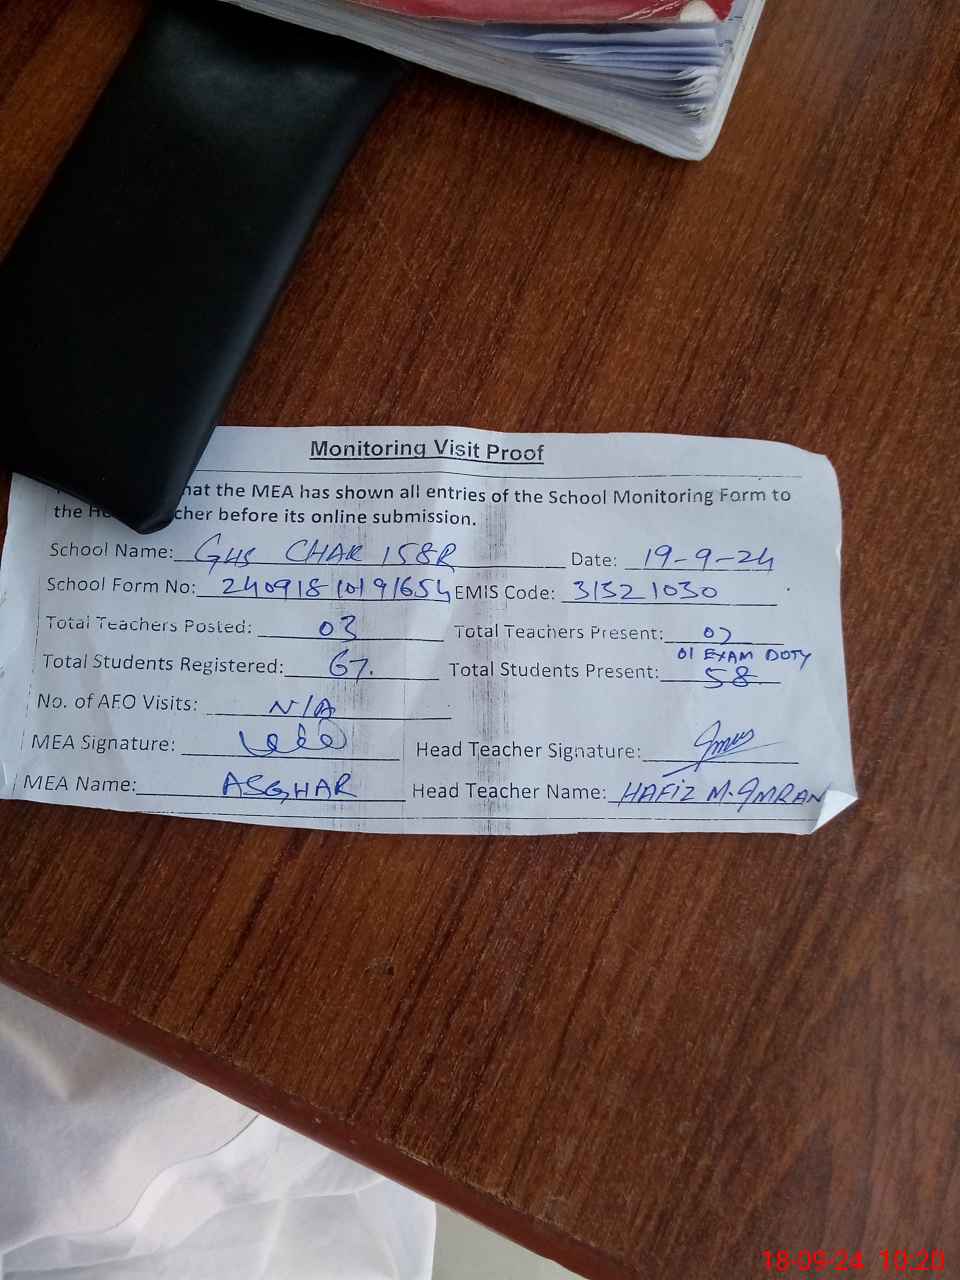 Monitoring Visit Proof
hat the MEA has shown all entries of the School Monitoring Form to
the He cher before its online submission.
School Name: GHS CHAK 158R Date: 19-9-24
School Form No: EMIS Code: 31321030
Total Teachers Posted: 03 Total Teachers Present: 02
01 EXAM DUTY
Total Students Registered: 67. Total Students Present: 58
No. of AEO Visits: N/A
MEA Signature: Head Teacher Signature:
MEA Name: ASGHAR Head Teacher Name: HAFIZ M. IMRAN
18-09-24 10:20